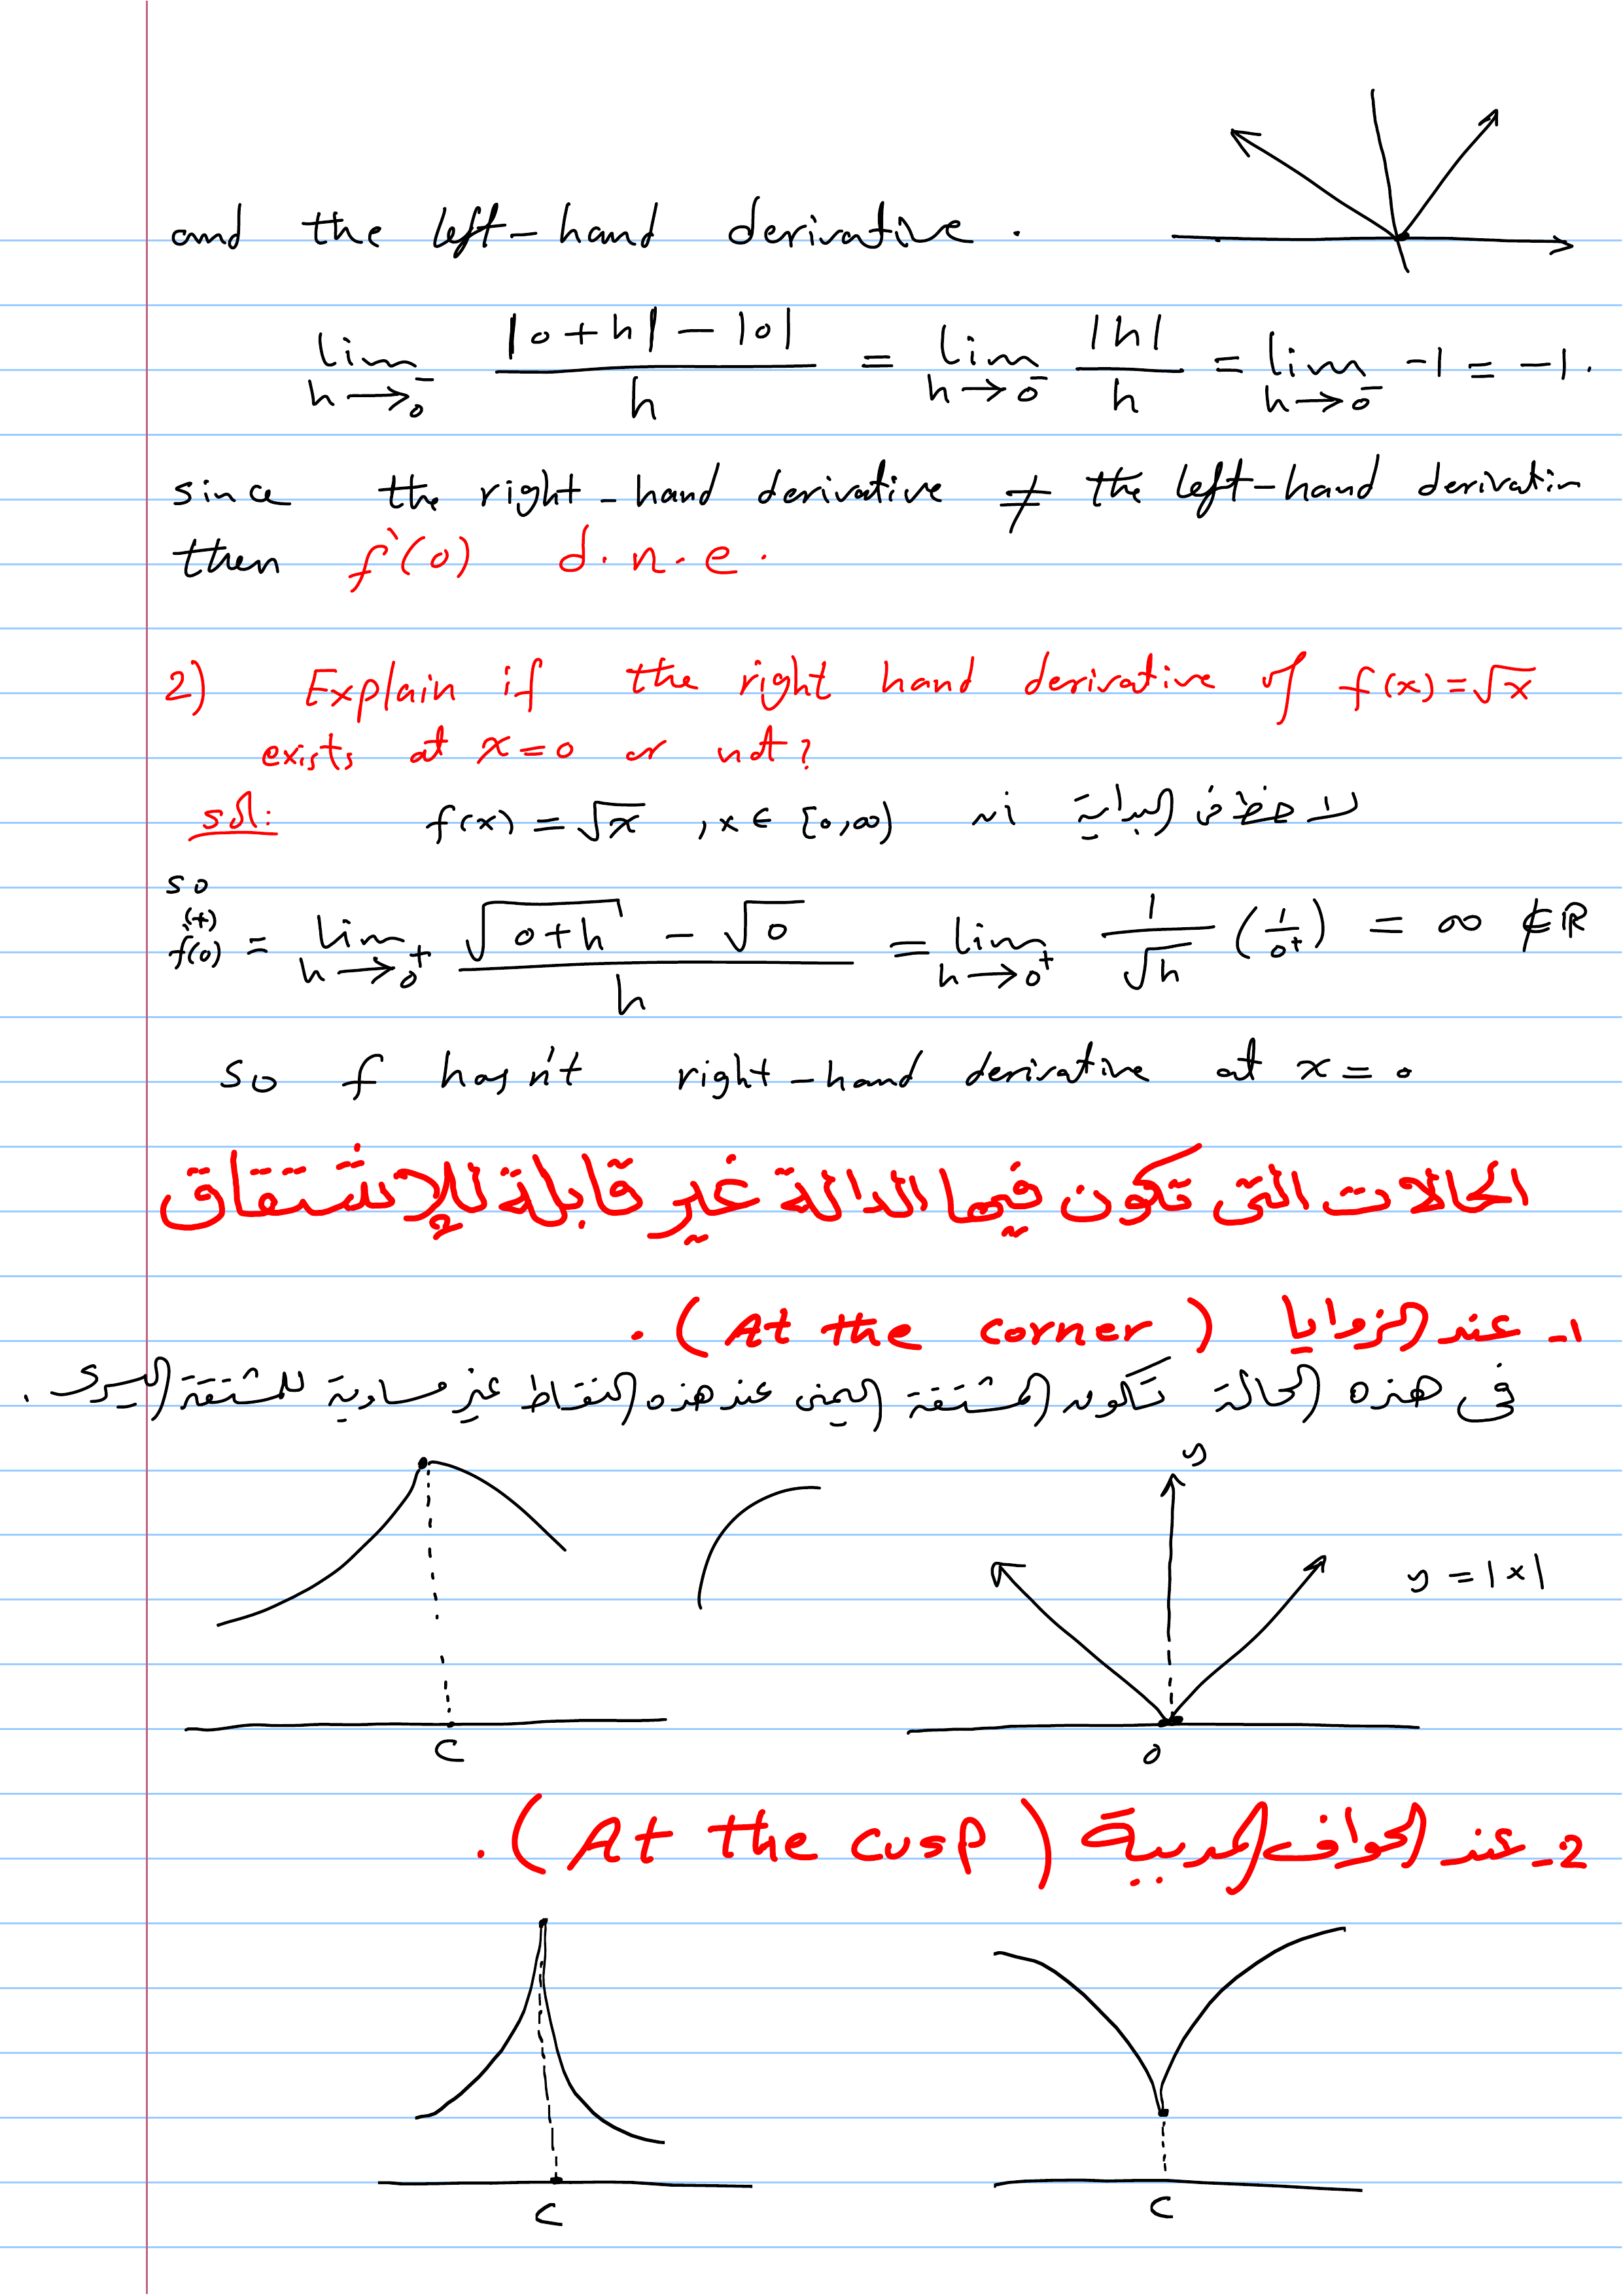 and the left-hand derivative.
lim h→0⁻ (|0+h| - |0|)/h = lim h→0⁻ |h|/h = lim h→0⁻ -1 = -1.
since the right-hand derivative ≠ the left-hand derivative
then f'(0) d.n.e.
2) Explain if the right hand derivative of f(x)=√x
exists at x=0 or not?
sol: f(x)=√x , x ∈ [0,∞) لاحظ في البداية أن
so
f⁽⁺⁾(0) = lim h→0⁺ (√(0+h) - √0)/h = lim h→0⁺ 1/√h (1/0⁺) = ∞ ∉ ℝ
so f hasn't right-hand derivative at x=0
الحالات التي تكون فيها الدالة غير قابلة للإشتقاق
1- عند الزوايا (At the corner).
في هذه الحالة تكون المشتقة اليمنى عند هذه النقاط غير مساوية للمشتقة اليسرى.
y
y = |x|
C
0
2- عند الحواف المدببة (At the cusp).
C
C